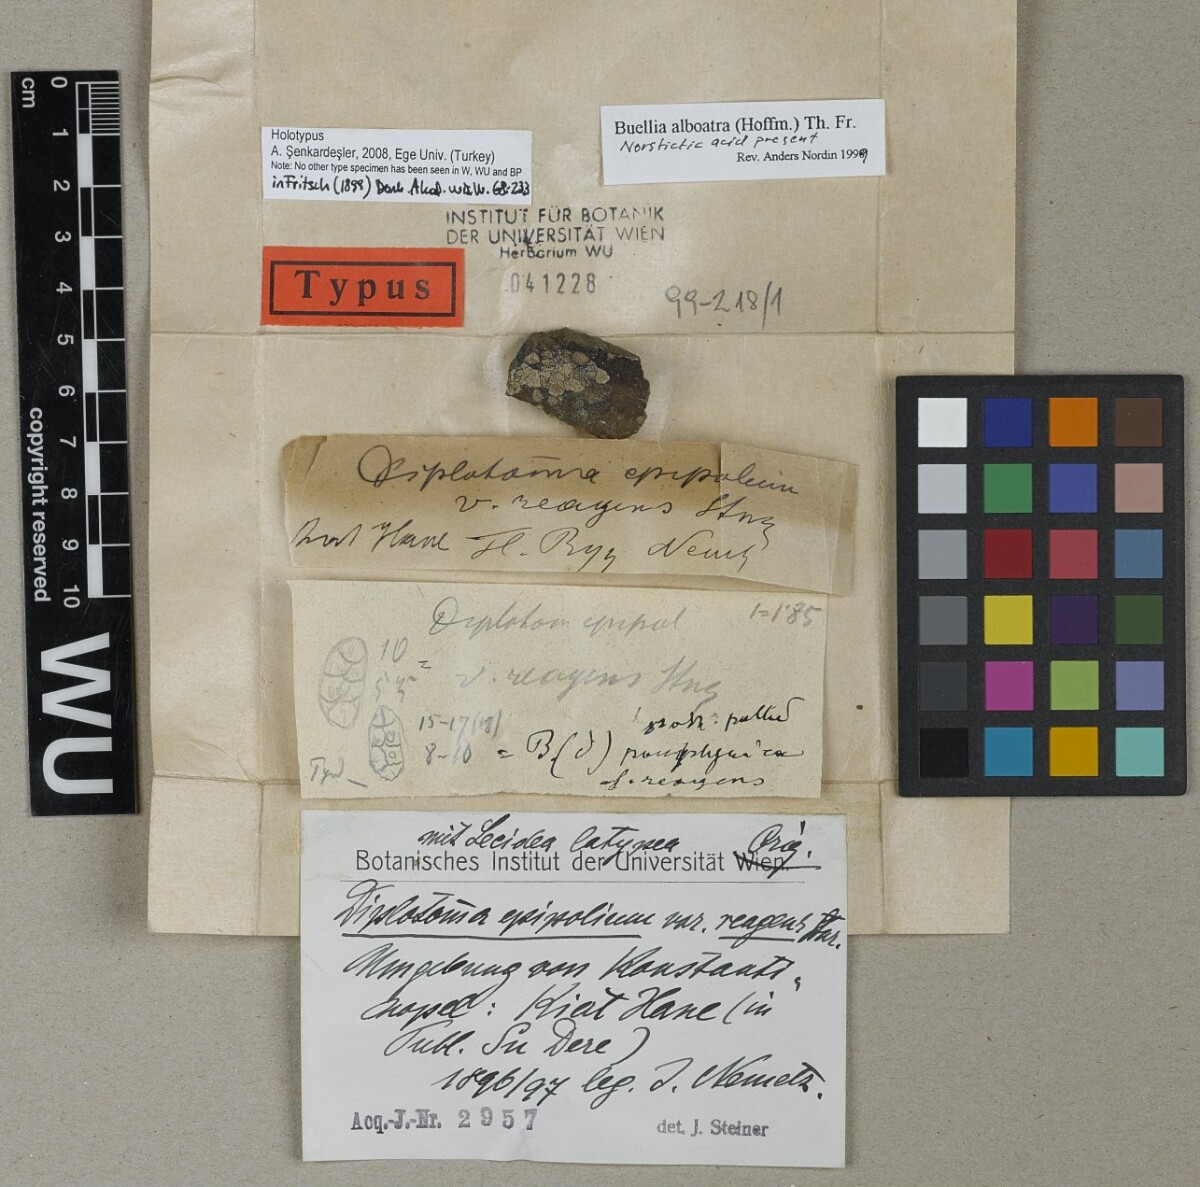 cm
0
1
2
3
4
5
6
7
8
9
10
copyright reserved
WU
Holotypus
A. Şenkardeşler, 2008, Ege Univ. (Turkey)
Note: No other type specimen has been seen in W, WU and BP
in Fritsch (1899) Denk. Akad. wiss. W. 68:233
Buellia alboatra (Hoffm.) Th. Fr.
Norstictic acid present
Rev. Anders Nordin 1999
INSTITUT FÜR BOTANIK
DER UNIVERSITÄT WIEN
Herbarium WU
041228
Typus
99-218/1
Diplotomma epipolium
v. reagens Stnr
Hane Fl. Byz Nemetz
Diplotom epipol
1=1'85
10
v. reagens Stnr
15-17(18)
8-10 = B. (D)
f. reagens
mit Lecidea latypea Orig.
Botanisches Institut der Universität Wien.
Diplotomma epipolium var. reagens Stnr.
Umgebung von Konstanti-
nopel: Kiat Hane (in
Su Dere)
1896/97 leg. J. Nemetz.
Acq.-J.-Nr. 2957
det. J. Steiner